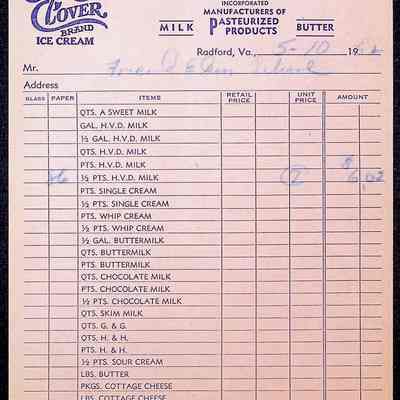 CLOVER
BRAND
ICE CREAM
INCORPORATED
MANUFACTURERS OF
MILK PASTEURIZED BUTTER
PRODUCTS
Radford, Va., 5-10 19
Mr.
Address
GLASS PAPER ITEMS RETAIL PRICE UNIT PRICE AMOUNT
QTS. A SWEET MILK
GAL. H.V.D. MILK
½ GAL. H.V.D. MILK
QTS. H.V.D. MILK
PTS. H.V.D. MILK $
86 ½ PTS. H.V.D. MILK 7 6.02
PTS. SINGLE CREAM
½ PTS. SINGLE CREAM
PTS. WHIP CREAM
½ PTS. WHIP CREAM
½ GAL. BUTTERMILK
QTS. BUTTERMILK
PTS. BUTTERMILK
QTS. CHOCOLATE MILK
PTS. CHOCOLATE MILK
½ PTS. CHOCOLATE MILK
QTS. SKIM MILK
QTS. G. & G.
QTS. H. & H.
PTS. H. & H.
½ PTS. SOUR CREAM
LBS. BUTTER
PKGS. COTTAGE CHEESE
LBS. COTTAGE CHEESE